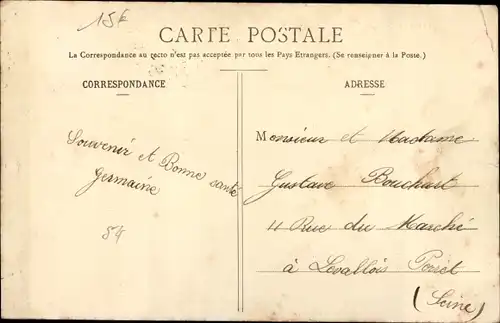 15€
CARTE POSTALE
La Correspondance au recto n'est pas acceptée par tous les Pays Etrangers. (Se renseigner à la Poste.)
CORRESPONDANCE
Souvenir et Bonne santé
Germaine
84
ADRESSE
Monsieur et Madame
Gustave Bouchart
4 Rue du Marché
à Levallois Perret
(Seine)